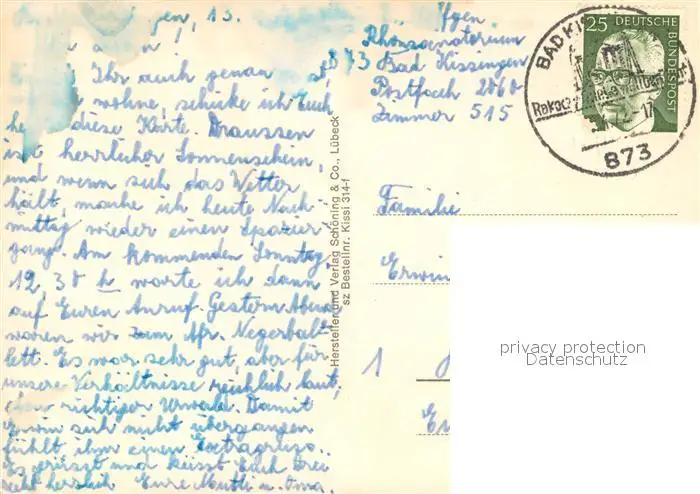 gen, 13.
Ihr auch genau
wohne, schicke ich Euch
diese Karte. Draussen
ist herrlicher Sonnenschein,
und wenn sich das Wetter
hält, mache ich heute Nach-
mittag wieder einen Spazier-
gang. Am kommenden Sonntag
12,30 h warte ich dann
auf Euren Anruf. Gestern Abend
waren wir zum Afr. Negerball-
lett. Es war sehr gut, aber für
unsere Verhältnisse reichlich laut,
eben richtiger Urwald. Damit
Erwin sich nicht übergangen
fühlt ihm einen Extragruss.
Es grüsst und küsst Euch drei
sehr herzlich Eure Mutti u. Oma.
Hersteller und Verlag Schöning & Co., Lübeck
sz Bestellnr. Kissi 314-f
Rhönsanatorium
873 Bad Kissingen
Postfach 2060
Zimmer 515
BAD KIS
873
25 DEUTSCHE
BUNDESPOST
Familie
Erwin
1
privacy protection
Datenschutz